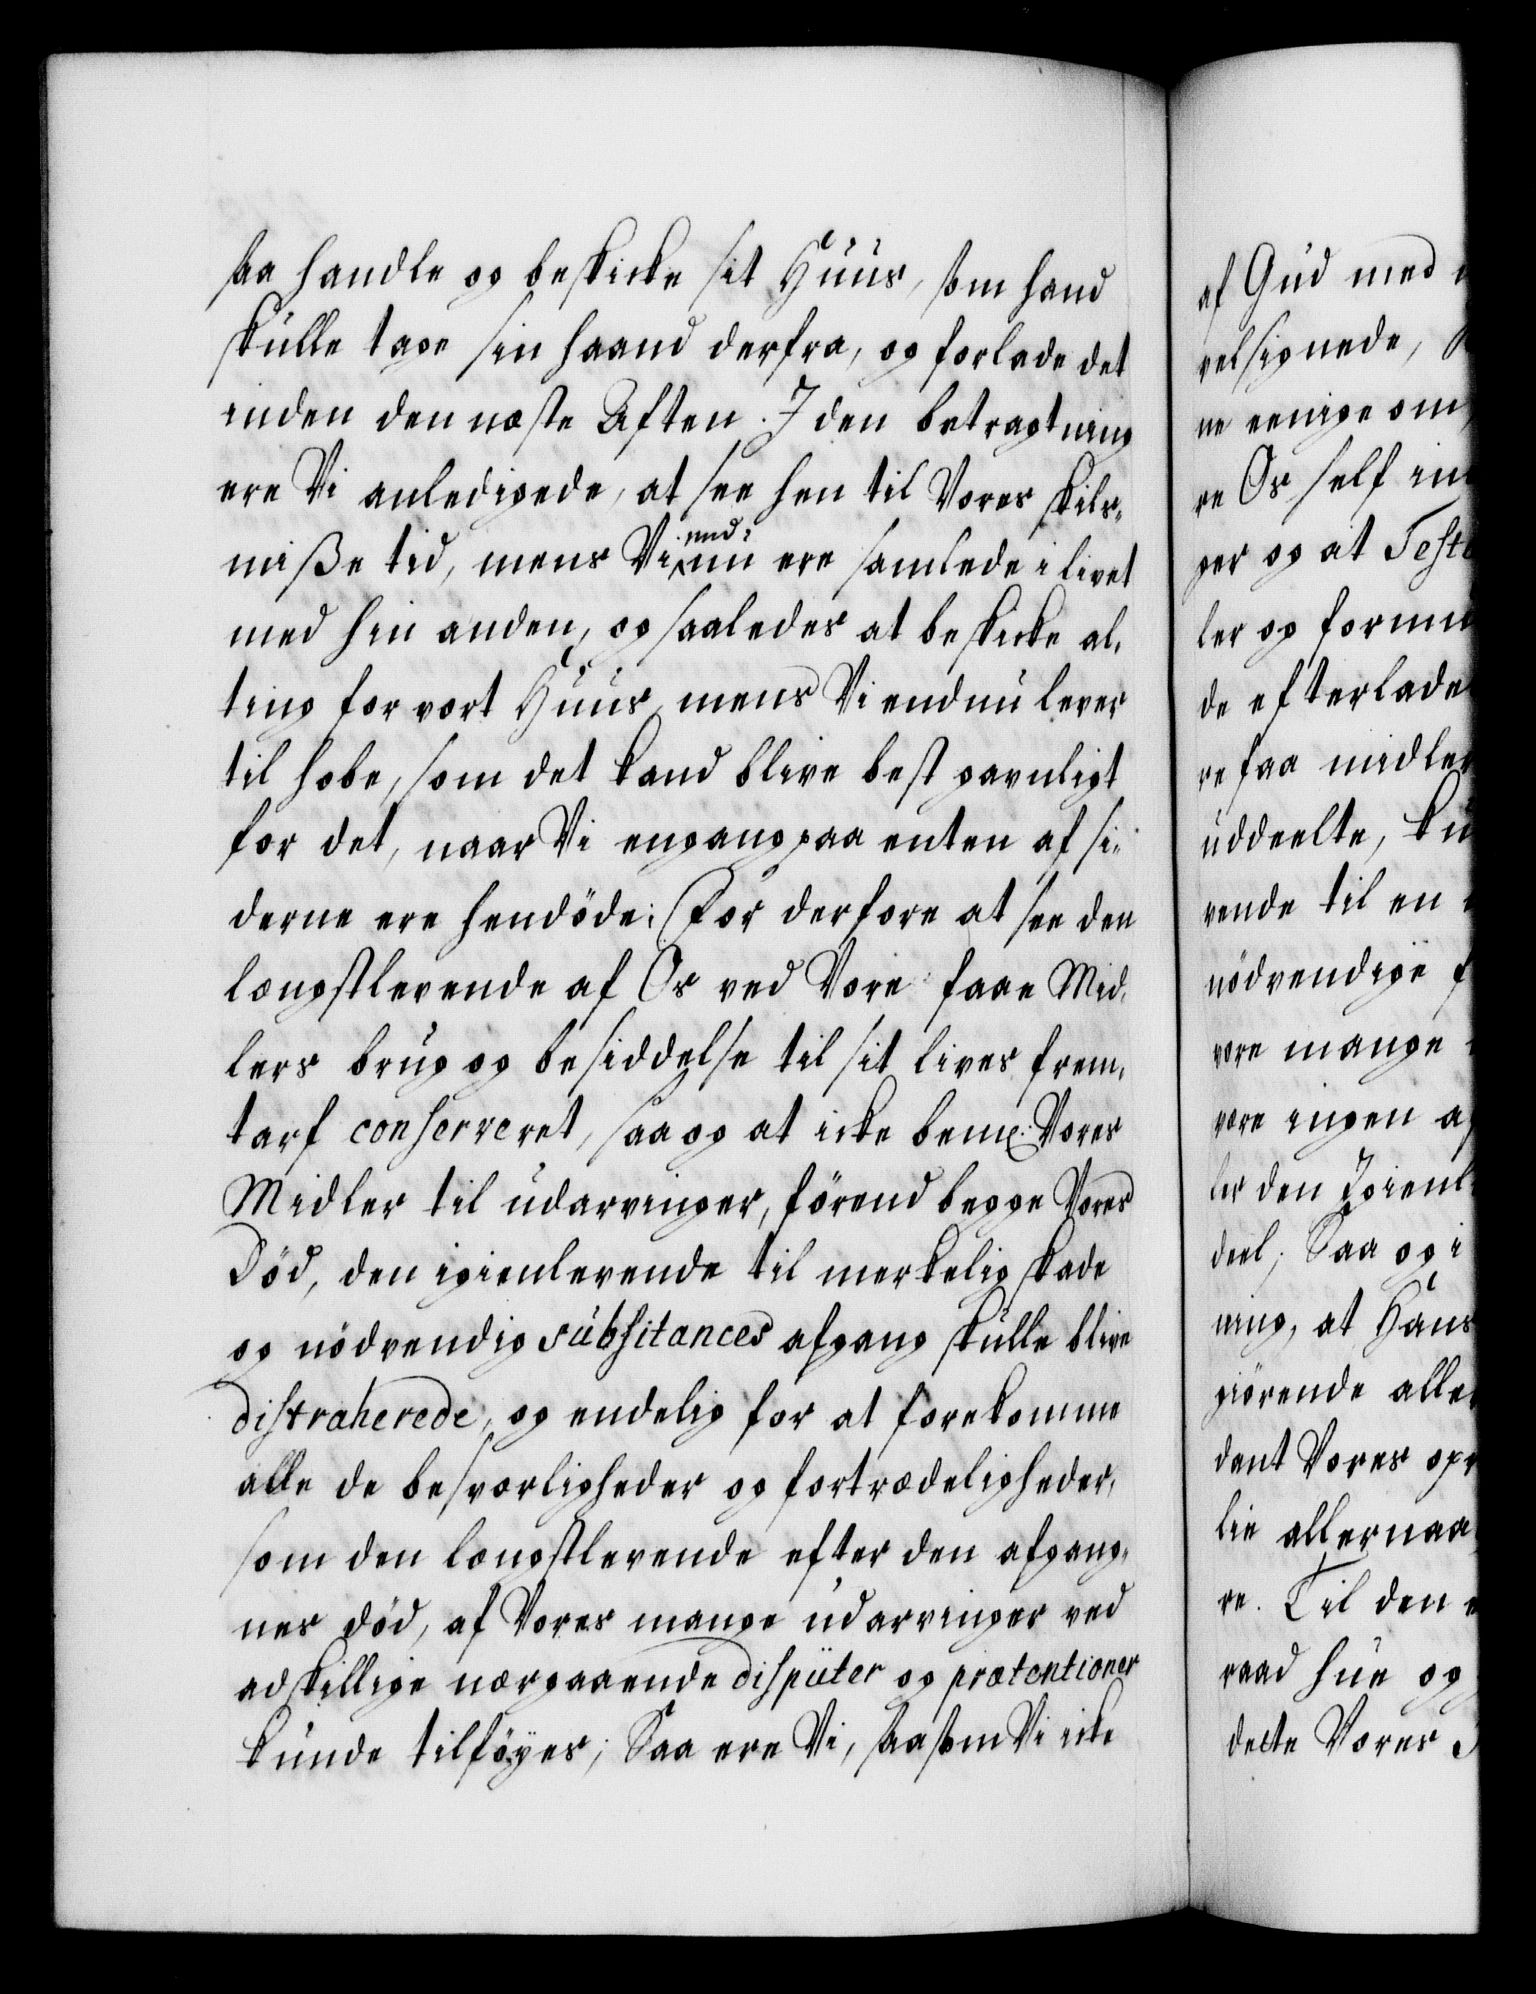 saa handle og beskicke sit Huus, som hand
skulle tage sin haand derfra, og forlade det
inden den næste Aften. I den betragtning
ere Vi anledigede, at see hen til Vores skils-
misse tid, mens Vi endnu ere samlede i livet
med hin anden, og saaledes at beskicke al-
ting for vort Huus, mens Vi endnu lever
til hobe, som det kand blive best gavnligt
for det, naar Vi engang paa enten af si-
derne ere hendöde; For derfore at see den
længstlevende af Os ved Vore faae Mid-
lers brug og besiddelse til sit lives frem-
tarf conserveret, saa og at icke bem: Vores
Midler til udarvinger, förend begge Vores
Död, den igienlevende til merkelig skade
og nödvendig subsitances afgang skulle blive
distraherede, og endelig for at forekomme
alle de besværligheder og fortrædeligheder,
som den længstlevende efter den afgang-
nes död, af Vores mange udarvinger ved
adskillige nærgaaende disputer og prætentioner
kunde tilföyes; Saa ere Vi, saasom Vi icke
af Gud med
velsignede,
ne eenige om
re Os self in
ger og at Test
ler og formu
de efterlade
re faa midler
uddeelte, ku
vende til en
nödvendige f
vore mange
være ingen a
ler den Igienl
deel; Saa og i
ning, at Hans
giörende alle
dant Vores opr
lie allernaa
re. Til den
raad hue og
dette Vores